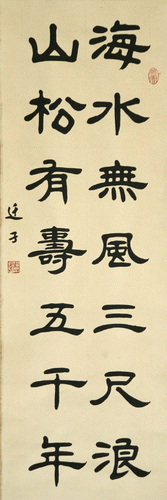 海水無風三尺浪
山松有壽五千年